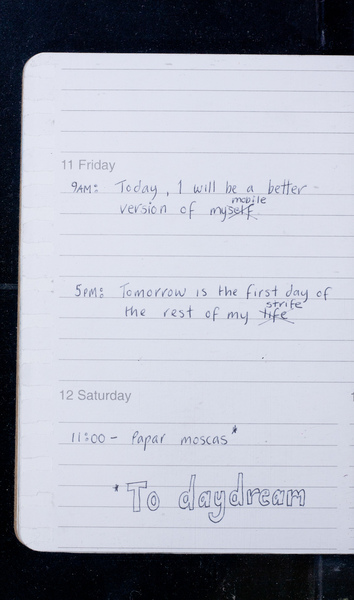 11 Friday
9AM: Today, I will be a better
mobile
version of myself
5PM: Tomorrow is the first day of
strife
the rest of my life
12 Saturday
11:00 - Papar moscas*
*To daydream